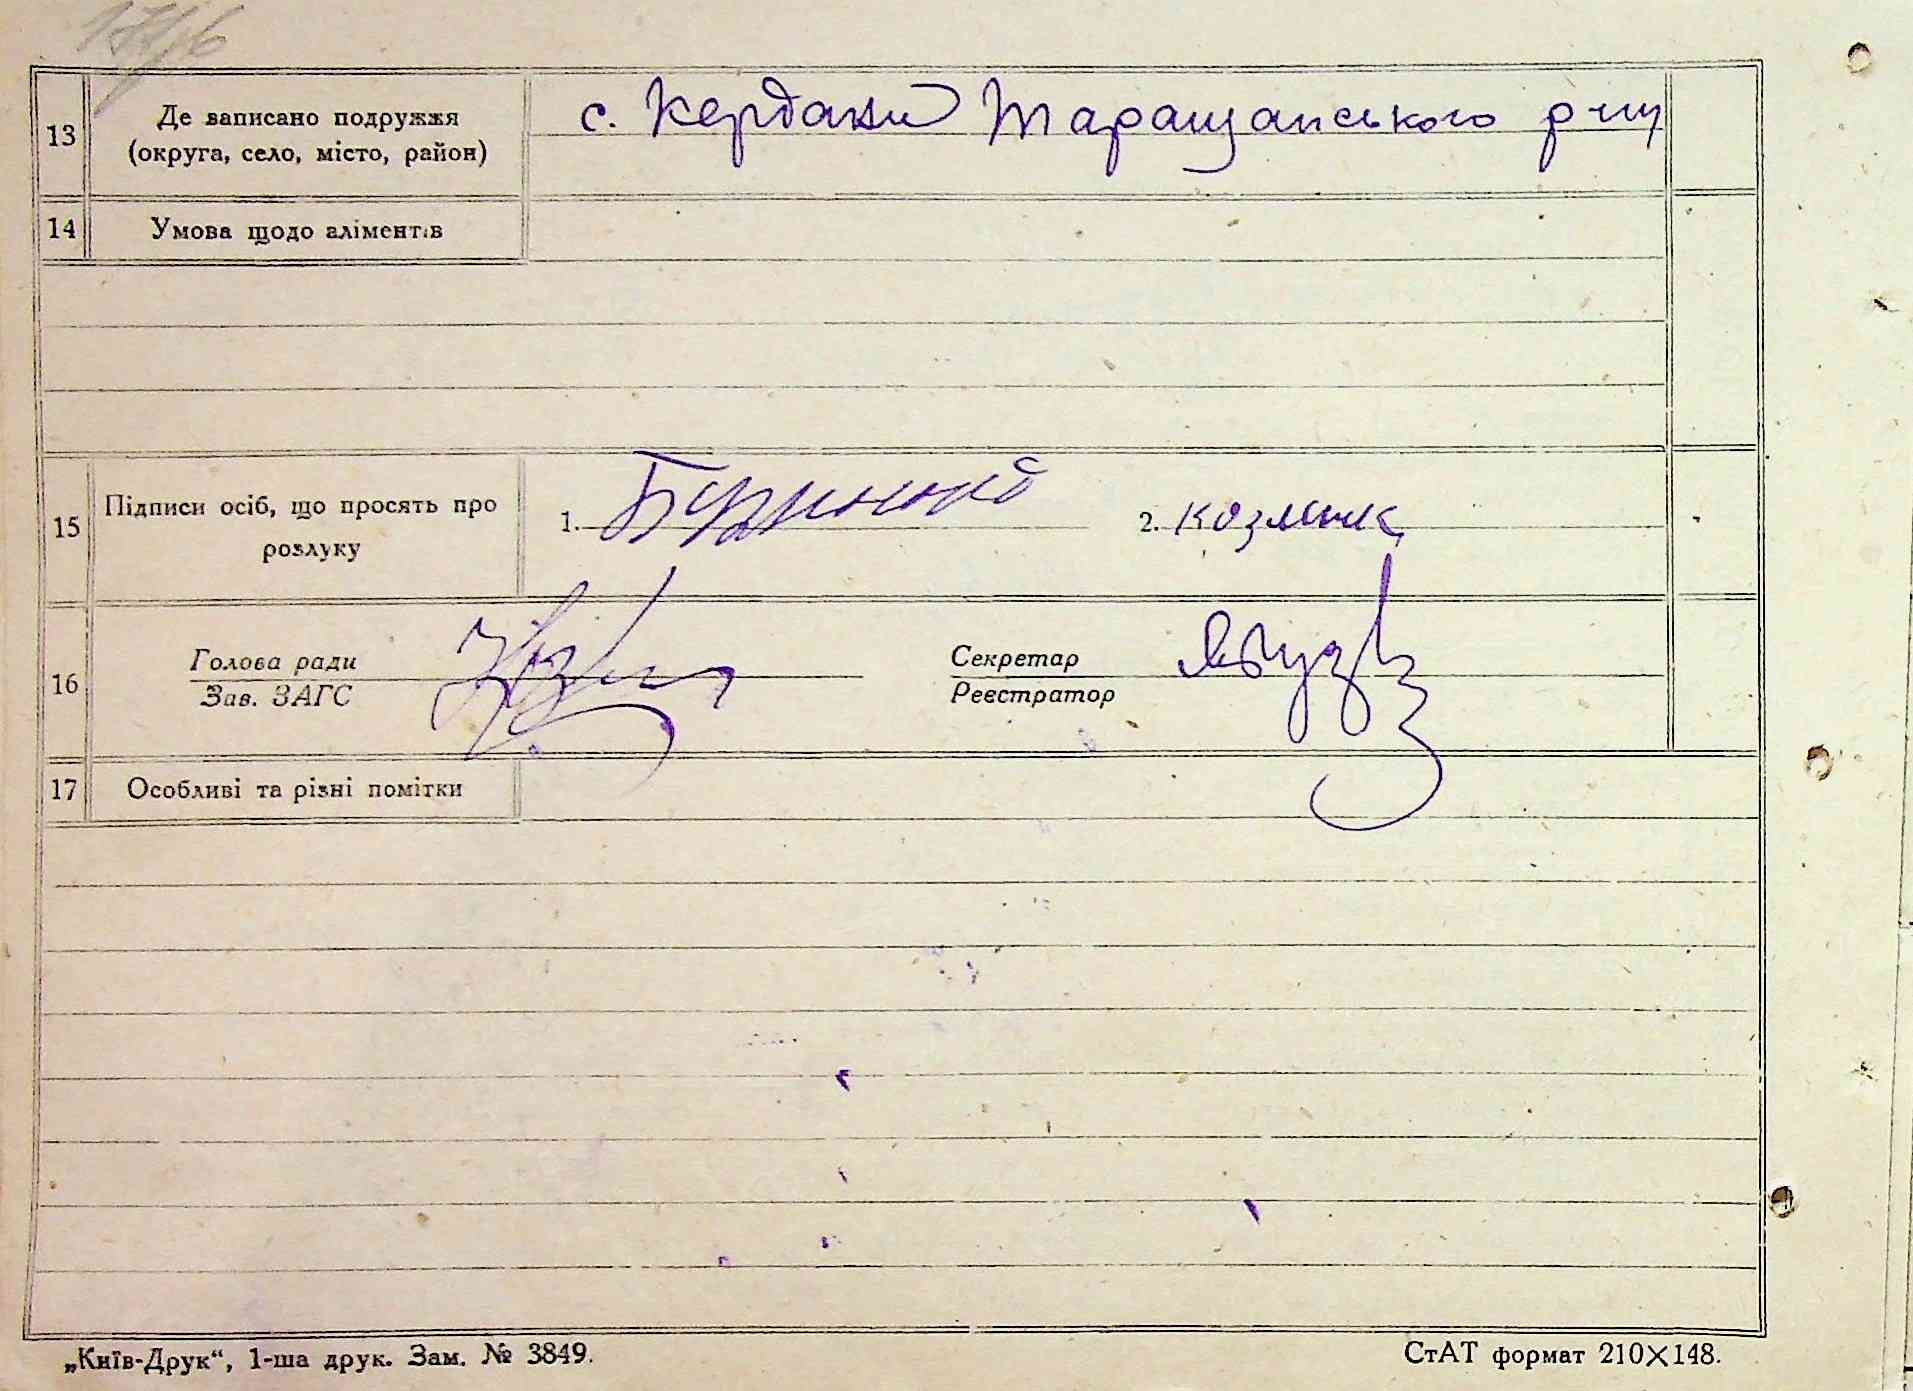 13 Де записано подружжя
(округа, село, місто, район)
с. Кердани Таращанського р-ну
14 Умова щодо аліментів
15 Підписи осіб, що просять про
розлуку
1. 2. Козлюк
16 Голова ради
Зав. ЗАГС
Секретар
Реєстратор
17 Особливі та різні помітки
„Київ-Друк“, 1-ша друк. Зам. № 3849.
СтАТ формат 210×148.